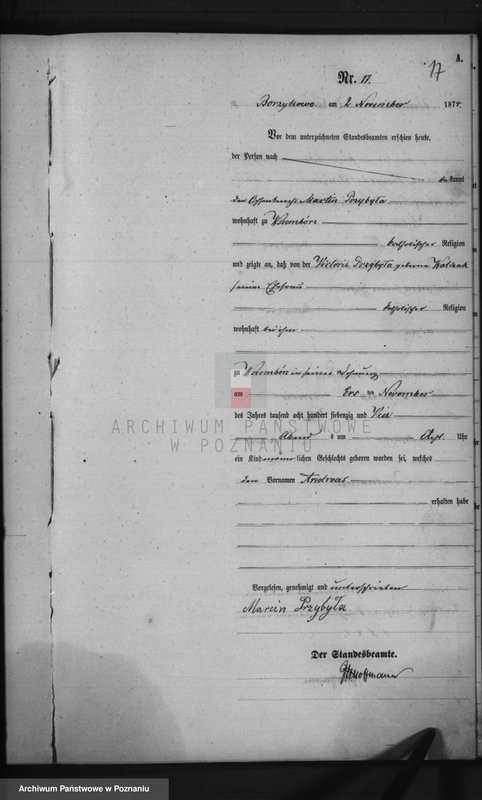 A.
17
Nr. 17.
Borzykowo am 2 November 1874.
Vor dem unterzeichneten Standesbeamten erschien heute,
der Person nach
bekannt
den Martin Przybyła
wohnhaft zu
katholischer Religion
und zeigte an, daß von der Victoria Przybyła geborne
seiner Ehefrau
katholischer Religion
wohnhaft bei ihm
zu in seiner Wohnung
am ten November
des Jahres tausend acht hundert siebenzig und Vier
Abends um Acht Uhr
ein Kind männlichen Geschlechts geboren worden sei, welches
den Vornamen Andreas
erhalten habe
Vorgelesen, genehmigt und unterschrieben
Marcin Przybyła
Der Standesbeamte.
Hoffmann
ARCHIWUM PAŃSTWOWE
W POZNANIU
Archiwum Państwowe w Poznaniu